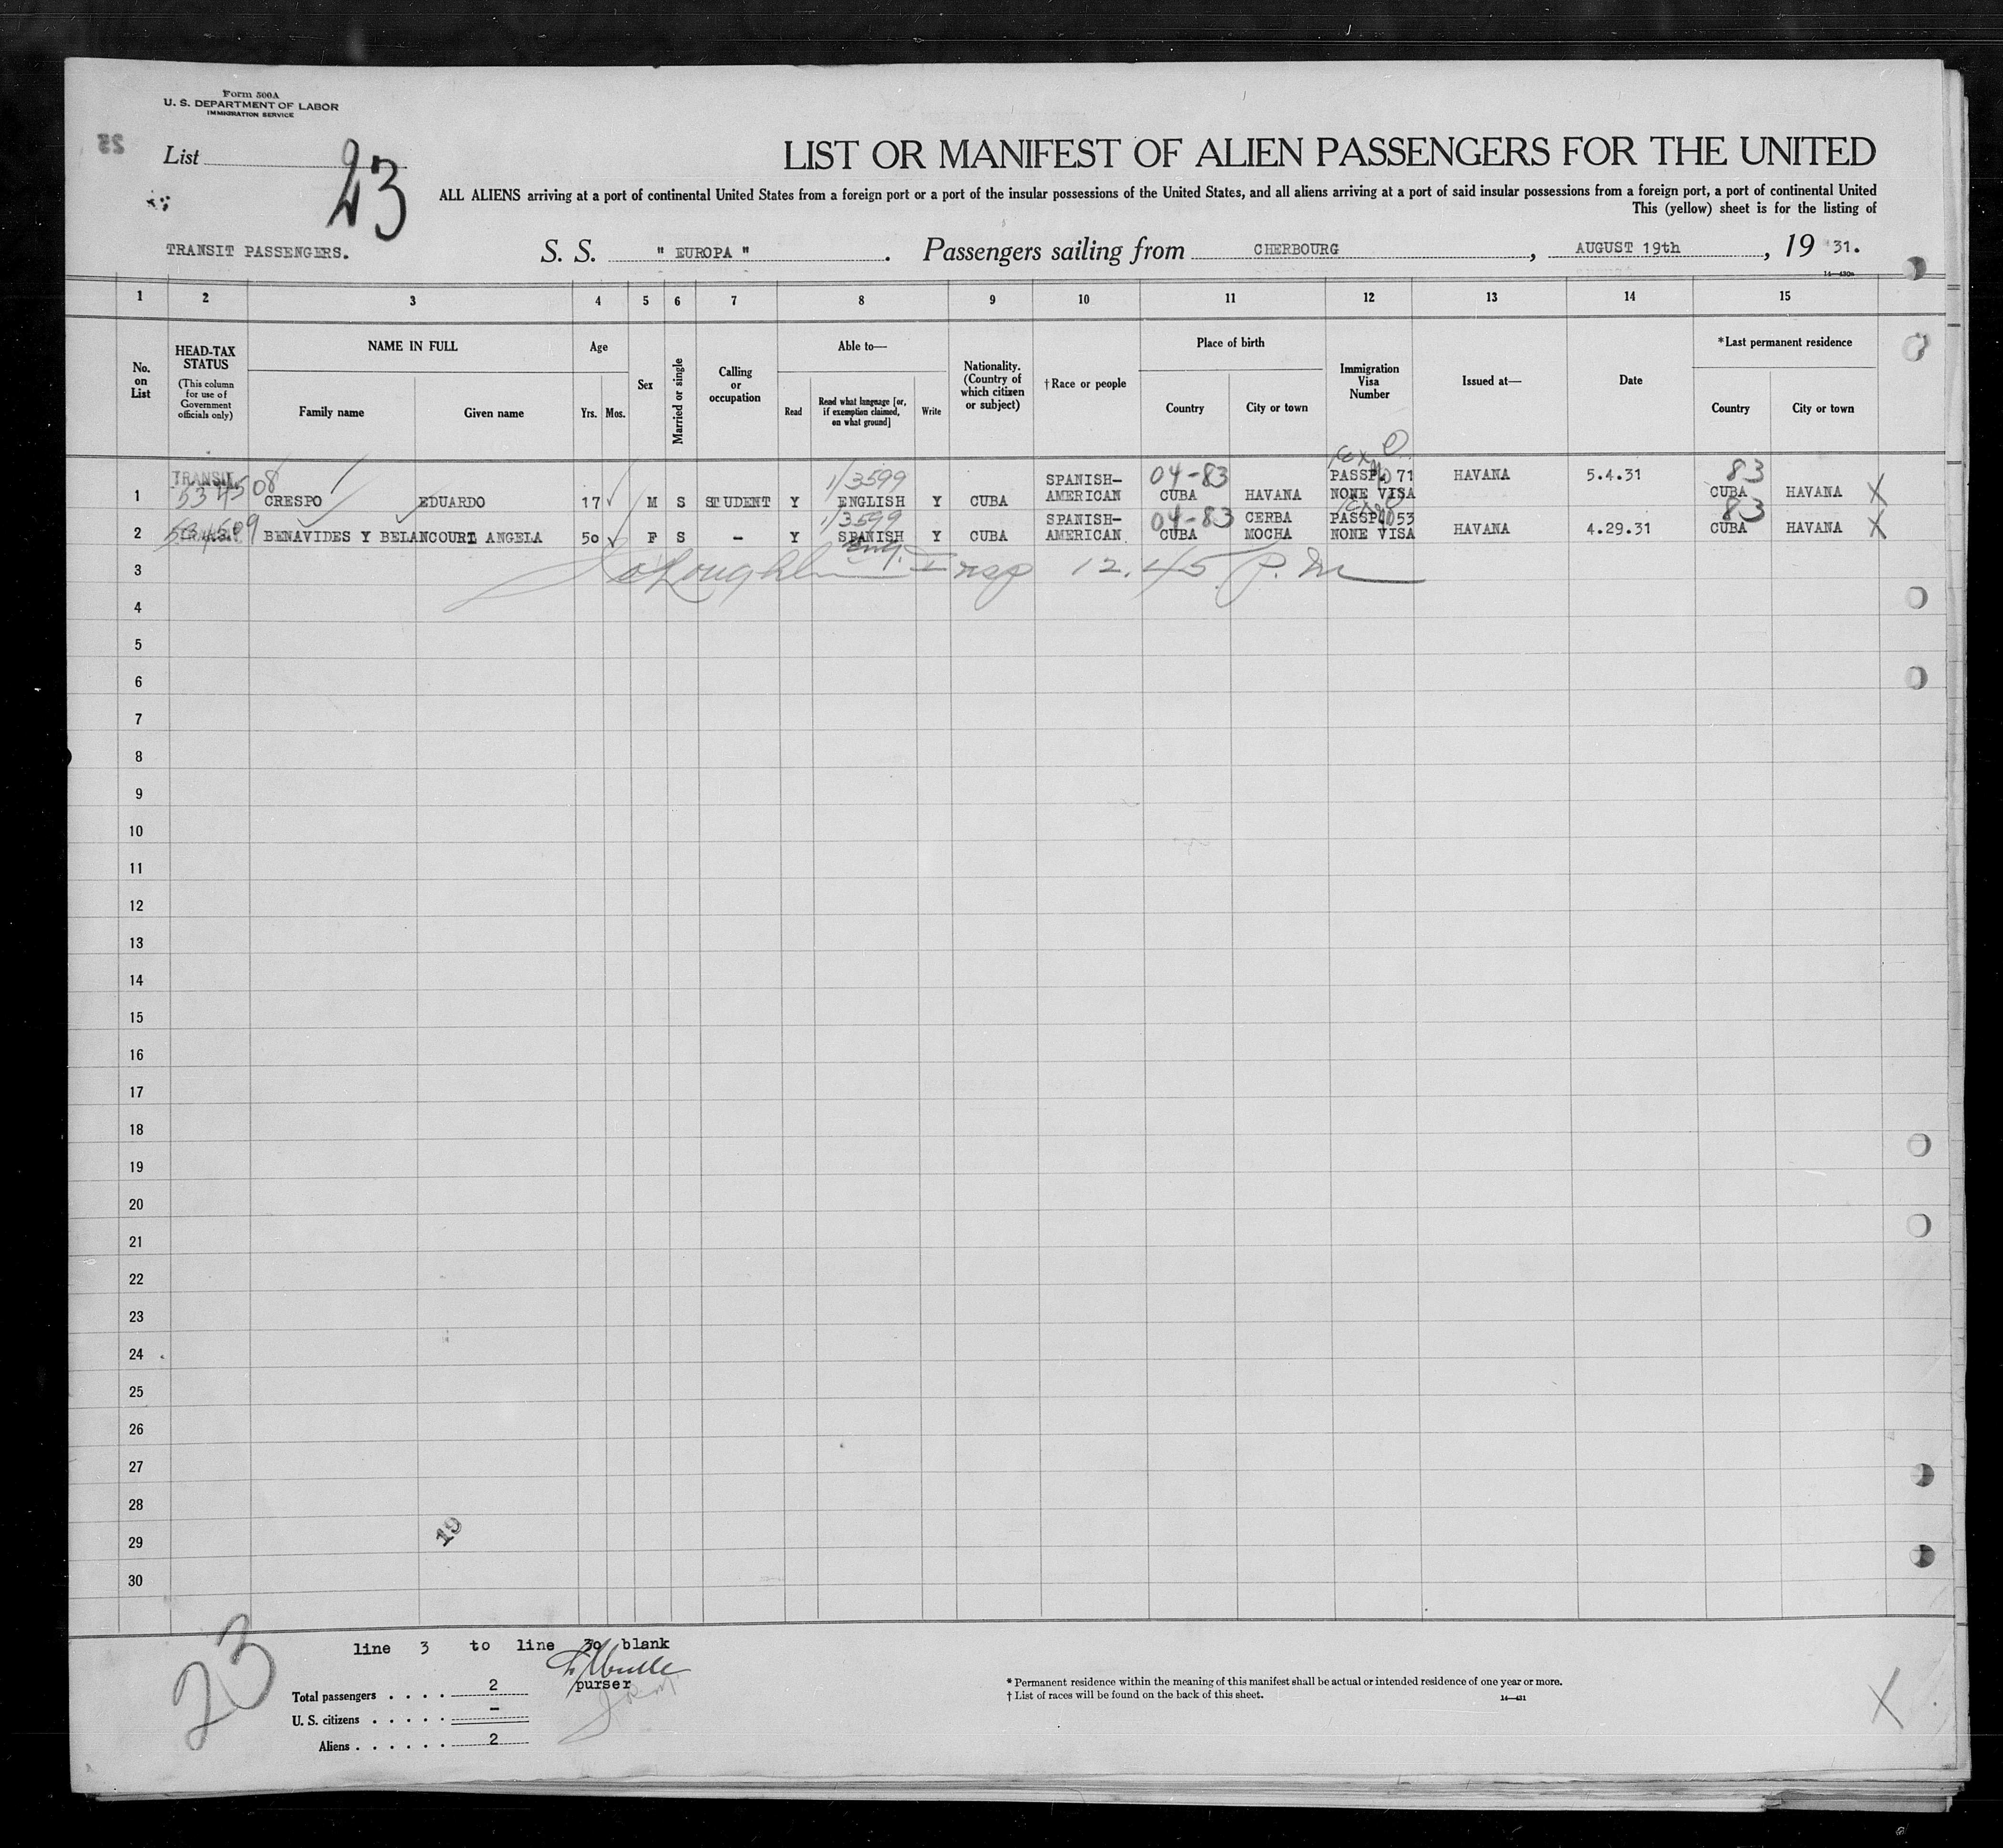 Form 500A
U. S. DEPARTMENT OF LABOR
IMMIGRATION SERVICE
List 23
LIST OR MANIFEST OF ALIEN PASSENGERS FOR THE UNITED
ALL ALIENS arriving at a port of continental United States from a foreign port or a port of the insular possessions of the United States, and all aliens arriving at a port of said insular possessions from a foreign port, a port of continental United
This (yellow) sheet is for the listing of
TRANSIT PASSENGERS. S. S. " EUROPA ". Passengers sailing from CHERBOURG, AUGUST 19th, 19 31.
14—430a
1 2 3 4 5 6 7 8 9 10 11 12 13 14 15
No. on List
HEAD-TAX STATUS
(This column for use of Government officials only)
NAME IN FULL
Family name Given name
Age
Yrs. Mos.
Sex
Married or single
Calling or occupation
Able to—
Read
Read what language [or, if exemption claimed, on what ground]
Write
Nationality. (Country of which citizen or subject)
† Race or people
Place of birth
Country City or town
Immigration Visa Number
Issued at—
Date
*Last permanent residence
Country City or town
TRANSIT 1/3599 SPANISH- 04-83 PASSP. 71 HAVANA 5.4.31 83
1 534508 CRESPO EDUARDO 17 M S STUDENT Y ENGLISH Y CUBA AMERICAN CUBA HAVANA NONE VISA CUBA HAVANA X
1/3599 SPANISH- 04-83 CERBA PASSP. 53 83
2 534509 BENAVIDES Y BELANCOURT ANGELA 50 F S - Y SPANISH Y CUBA AMERICAN CUBA MOCHA NONE VISA HAVANA 4.29.31 CUBA HAVANA X
Eng.
3 Insp 12.45 P.M
4
5
6
7
8
9
10
11
12
13
14
15
16
17
18
19
20
21
22
23
24
25
26
27
28
29
30
19
23
line 3 to line 30 blank
purser
Total passengers . . . . 2
U. S. citizens . . . . . –
Aliens . . . . . . 2
* Permanent residence within the meaning of this manifest shall be actual or intended residence of one year or more.
† List of races will be found on the back of this sheet.
14—431
X